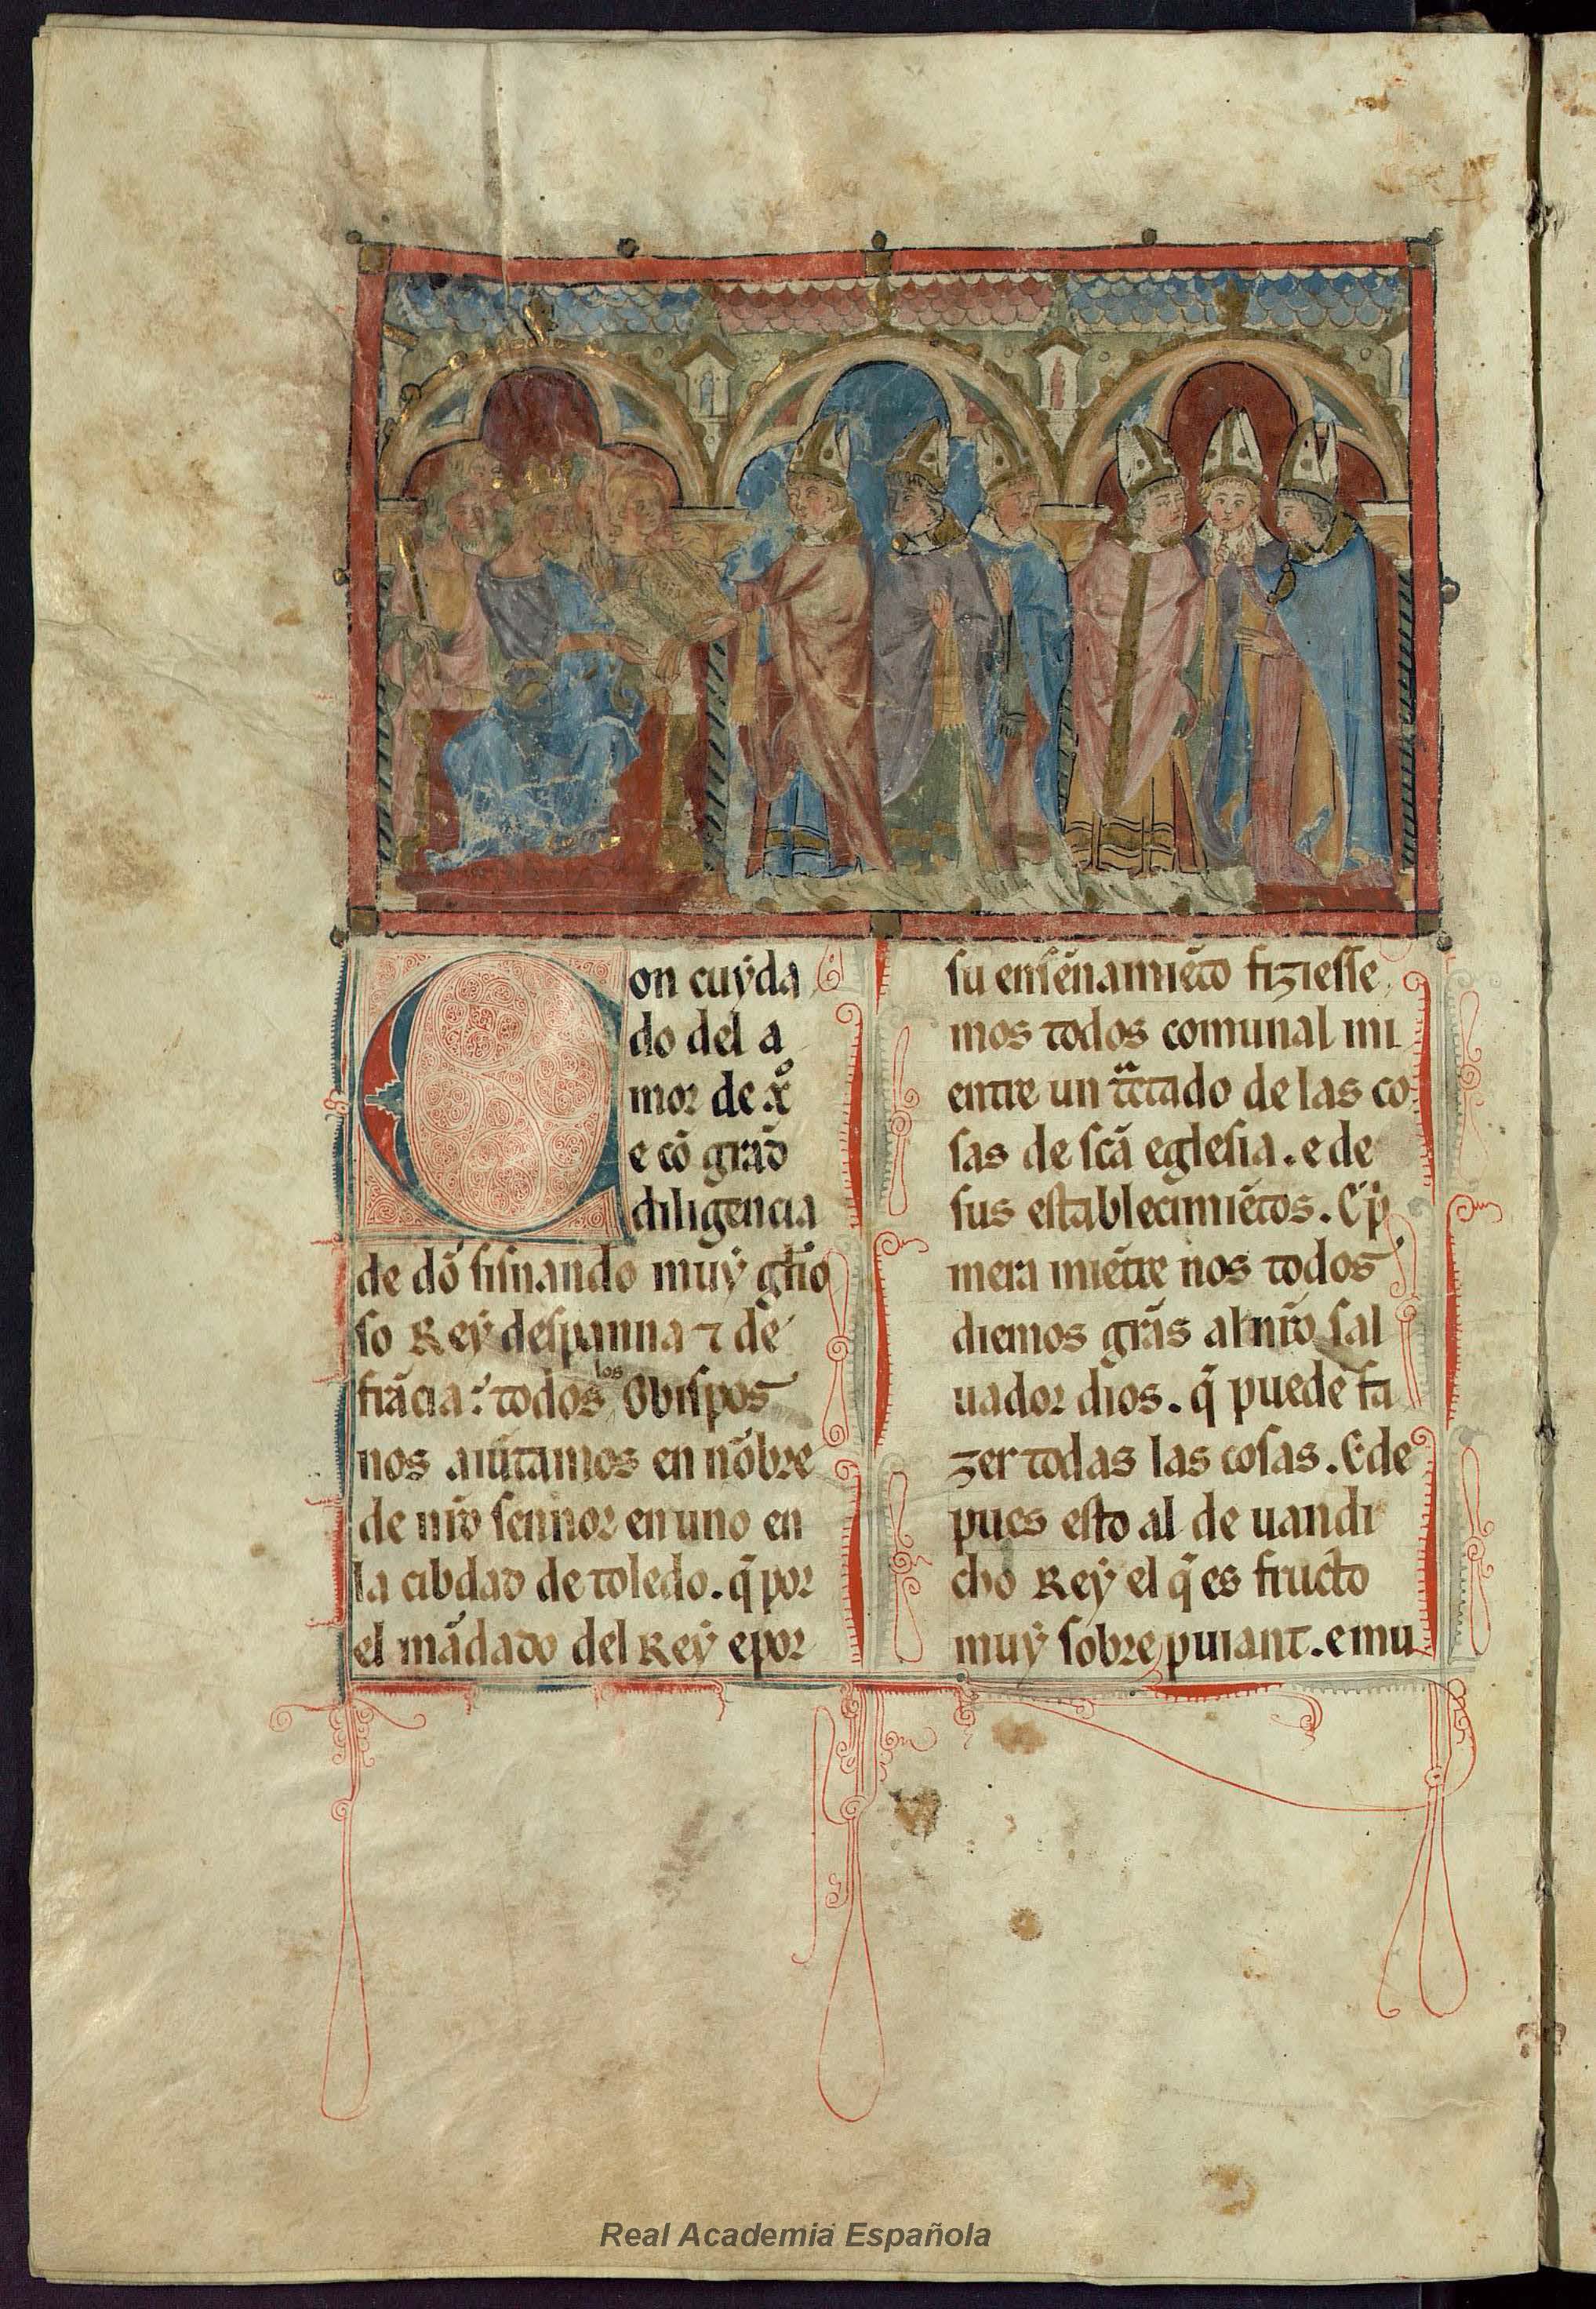 Con cuyda
do del a
mor de xo̅
e cõ grãd
diligencia
de dõ sisnando muy gl̃io
so Rey despanna ⁊ de
frãcia: todos los Obispos
nos aiũtamos en nõbre
de nr̃o sennor en uno en
la cibdad de toledo. q̃ por
el mãdado del Rey e por
su ensenamiẽto fiziesse
mos todos comunal mi
entre un tᵃctado de las co
sas de scã eglesia. e de
sus establecimiẽtos. E pⁱ
mera miẽtre nos todos
diemos grãs al nr̃o sal
uador dios. q̃ puede fa
zer todas las cosas. E de
pues esto al de uandi
cho Rey el q̃ es fructo
muy sobre puiant. e mu
Real Academia Española